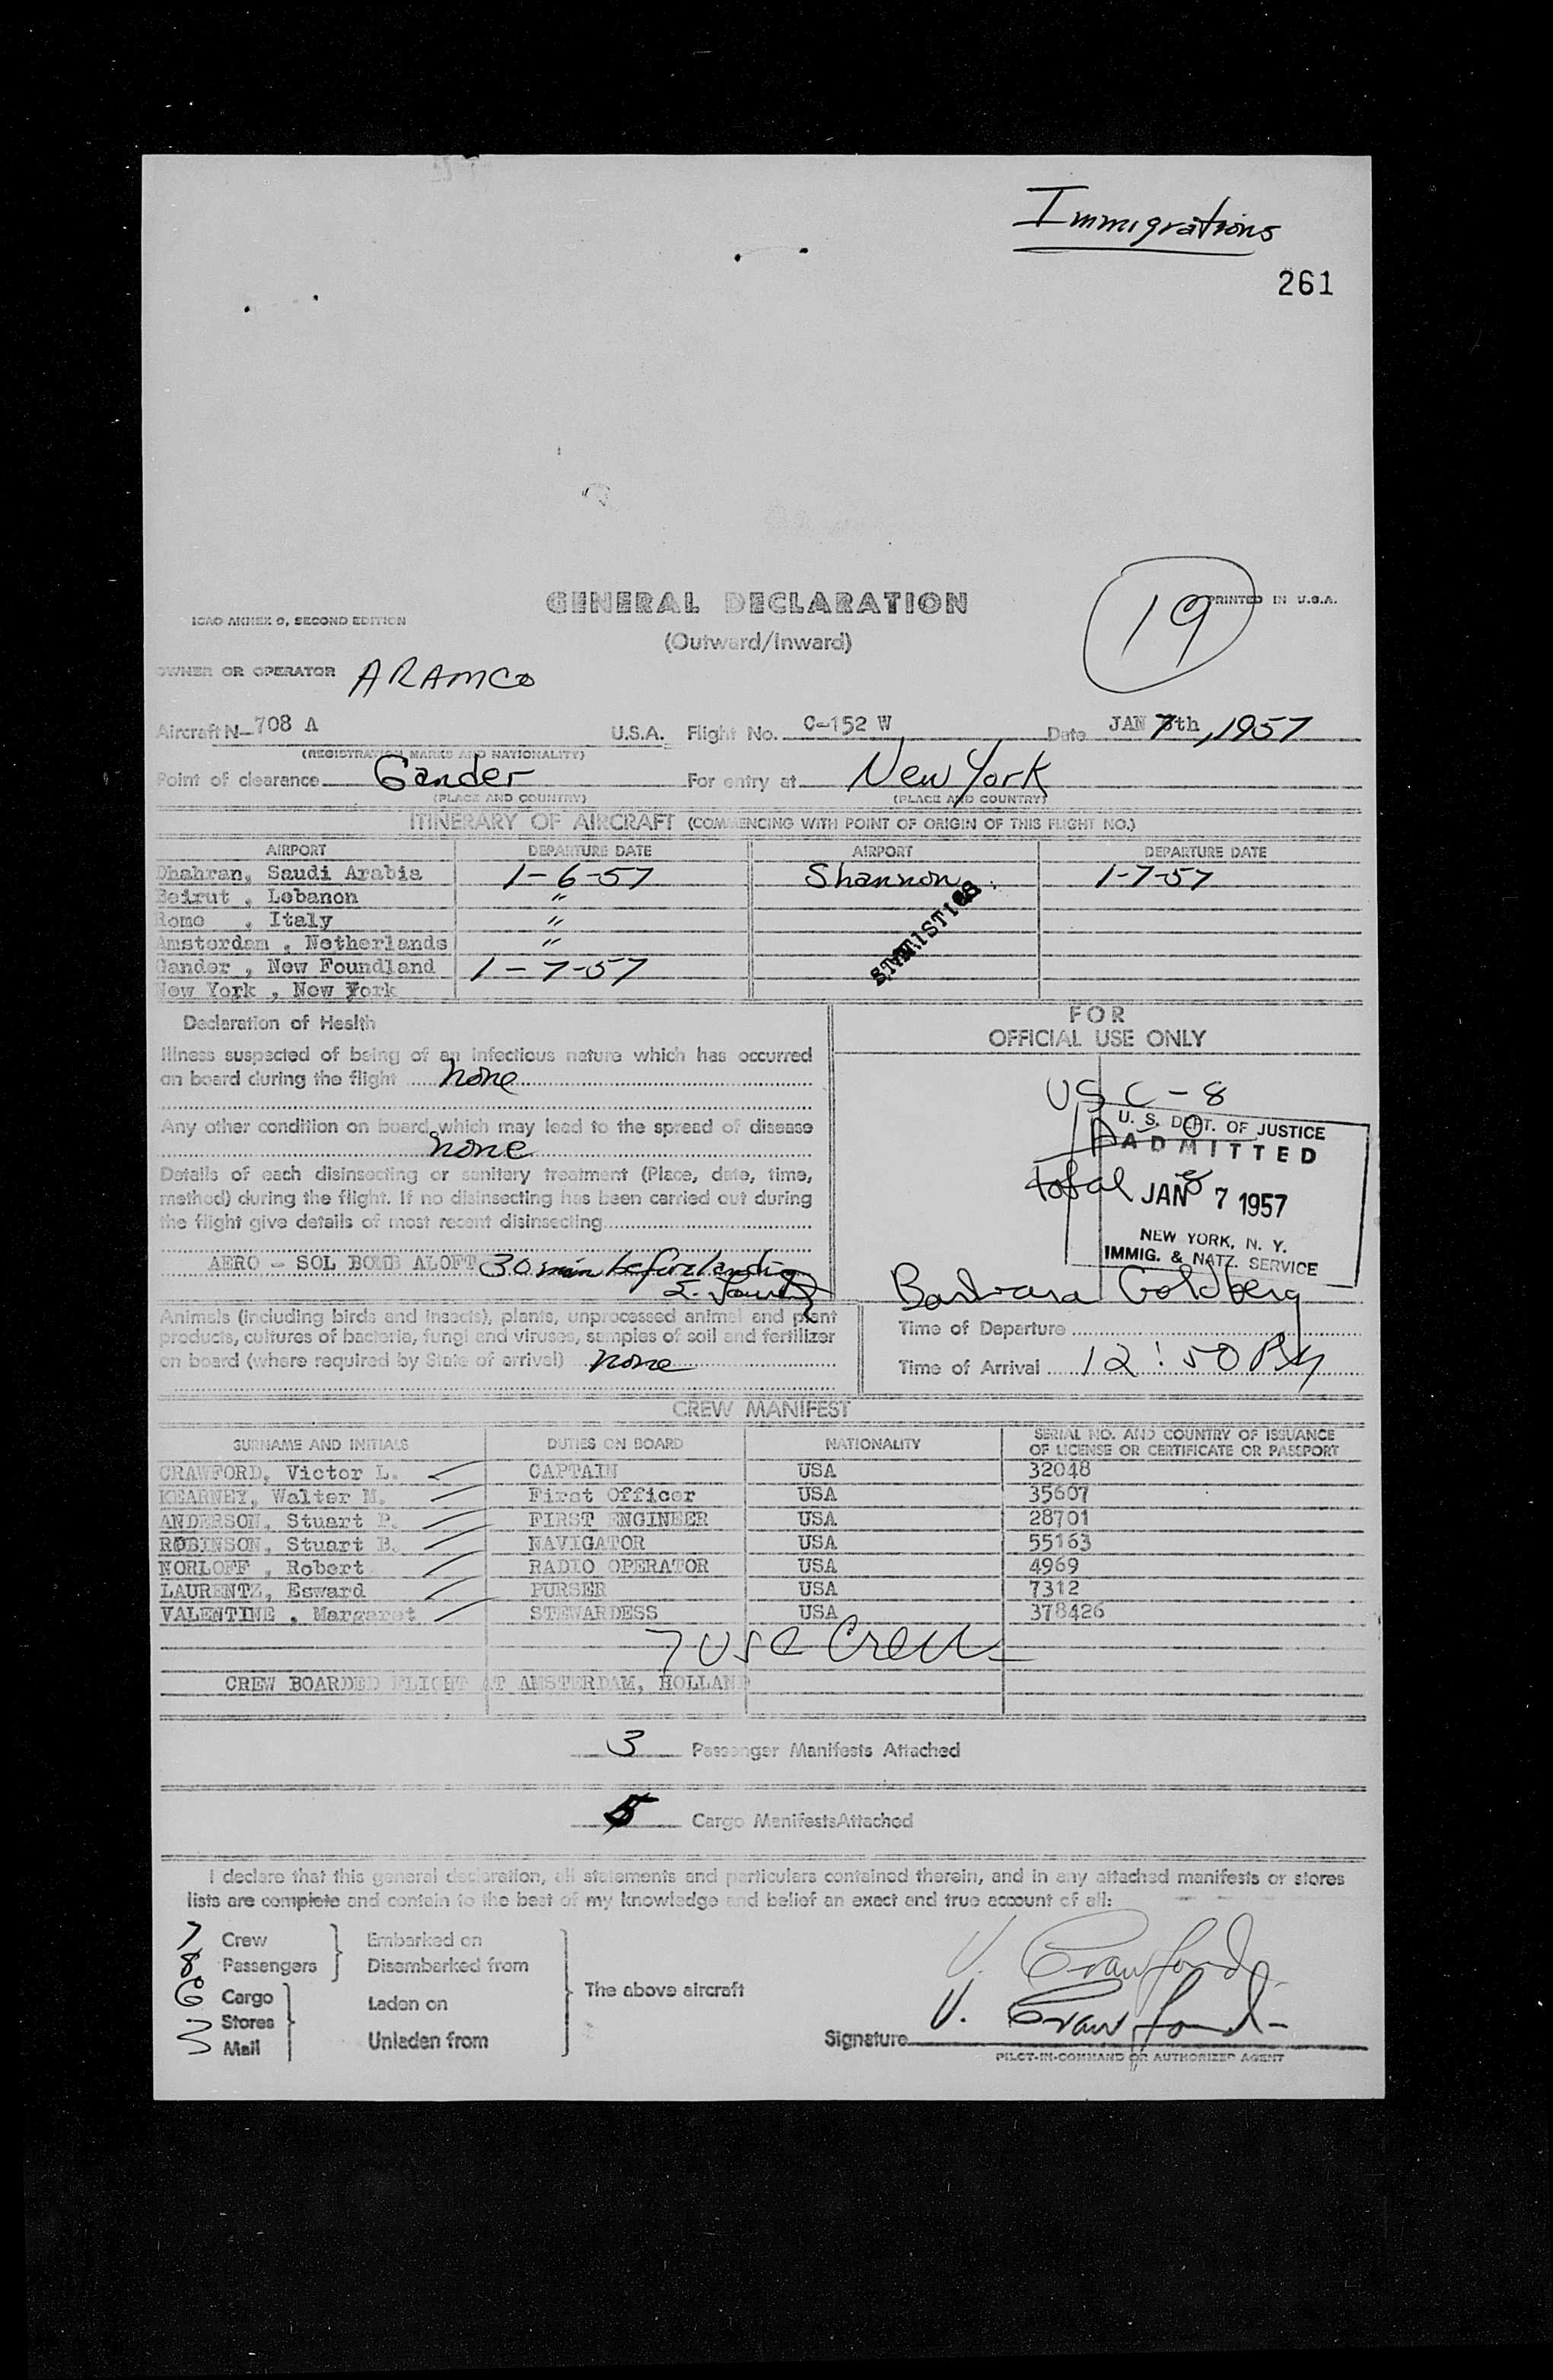 Immigrations
261
GENERAL DECLARATION
19
PRINTED IN U.S.A.
ICAO ANNEX 9, SECOND EDITION
(Outward/Inward)
OWNER OR OPERATOR ARAMCO
Aircraft N-708 A U.S.A. Flight No. C-152 W Date JAN 7th, 1957
(REGISTRATION MARKS AND NATIONALITY)
Point of clearance Gander For entry at New York
(PLACE AND COUNTRY) (PLACE AND COUNTRY)
ITINERARY OF AIRCRAFT (COMMENCING WITH POINT OF ORIGIN OF THIS FLIGHT NO.)
AIRPORT DEPARTURE DATE AIRPORT DEPARTURE DATE
Dhahran, Saudi Arabia 1-6-57 Shannon 1-7-57
Beirut , Lebanon "
Rome , Italy "
Amsterdam , Netherlands "
Gander , New Foundland 1-7-57
New York , New York
Declaration of Health
FOR
OFFICIAL USE ONLY
Illness suspected of being of an infectious nature which has occurred
on board during the flight none
Any other condition on board which may lead to the spread of disease
none
Details of each disinsecting or sanitary treatment (Place, date, time,
method) during the flight. If no disinsecting has been carried out during
the flight give details of most recent disinsecting
AERO - SOL BOMB ALOFT 30 min before landing
USC-8
U. S. DEPT. OF JUSTICE
A 0
ADMITTED
total 8
JAN 7 1957
NEW YORK, N. Y.
IMMIG. & NATZ. SERVICE
Barbara Goldberg
Animals (including birds and insects), plants, unprocessed animal and plant
products, cultures of bacteria, fungi and viruses, samples of soil and fertilizer
on board (where required by State of arrival) none
Time of Departure
Time of Arrival 12:50 PM
CREW MANIFEST
SURNAME AND INITIALS DUTIES ON BOARD NATIONALITY SERIAL NO. AND COUNTRY OF ISSUANCE
OF LICENSE OR CERTIFICATE OR PASSPORT
CRAWFORD, Victor L. CAPTAIN USA 32048
KEARNEY, Walter M. First Officer USA 35607
ANDERSON, Stuart P. FIRST ENGINEER USA 28701
ROBINSON, Stuart B. NAVIGATOR USA 55163
NORLOFF , Robert RADIO OPERATOR USA 4969
LAURENTZ, Esward PURSER USA 7312
VALENTINE , Margaret STEWARDESS USA 378426
7 USC Crew
CREW BOARDED FLIGHT AT AMSTERDAM, HOLLAND
3 Passenger Manifests Attached
5 Cargo Manifests Attached
I declare that this general declaration, all statements and particulars contained therein, and in any attached manifests or stores
lists are complete and contain to the best of my knowledge and belief an exact and true account of all:
7 Crew Embarked on
8 Passengers Disembarked from
Cargo Laden on The above aircraft
Stores
Mail Unladen from
V. Crawford
V. Crawford
Signature
PILOT-IN-COMMAND OR AUTHORIZED AGENT